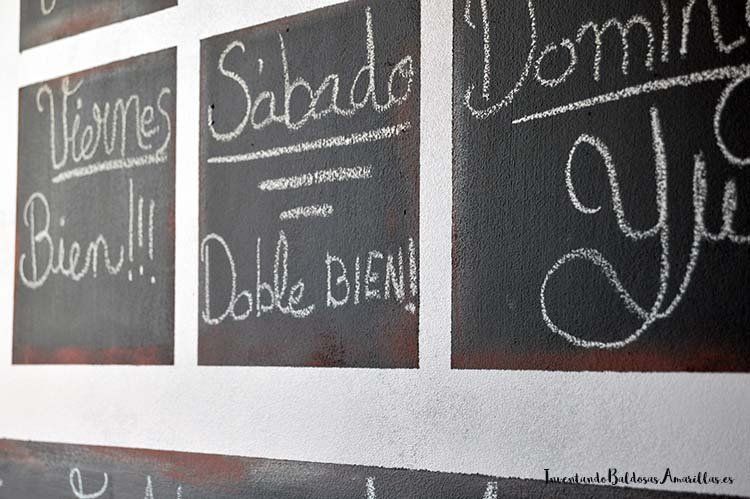 Viernes
Bien!!!
Sábado
Doble BIEN!
Domin
Yu
InventandoBaldosasAmarillas.es